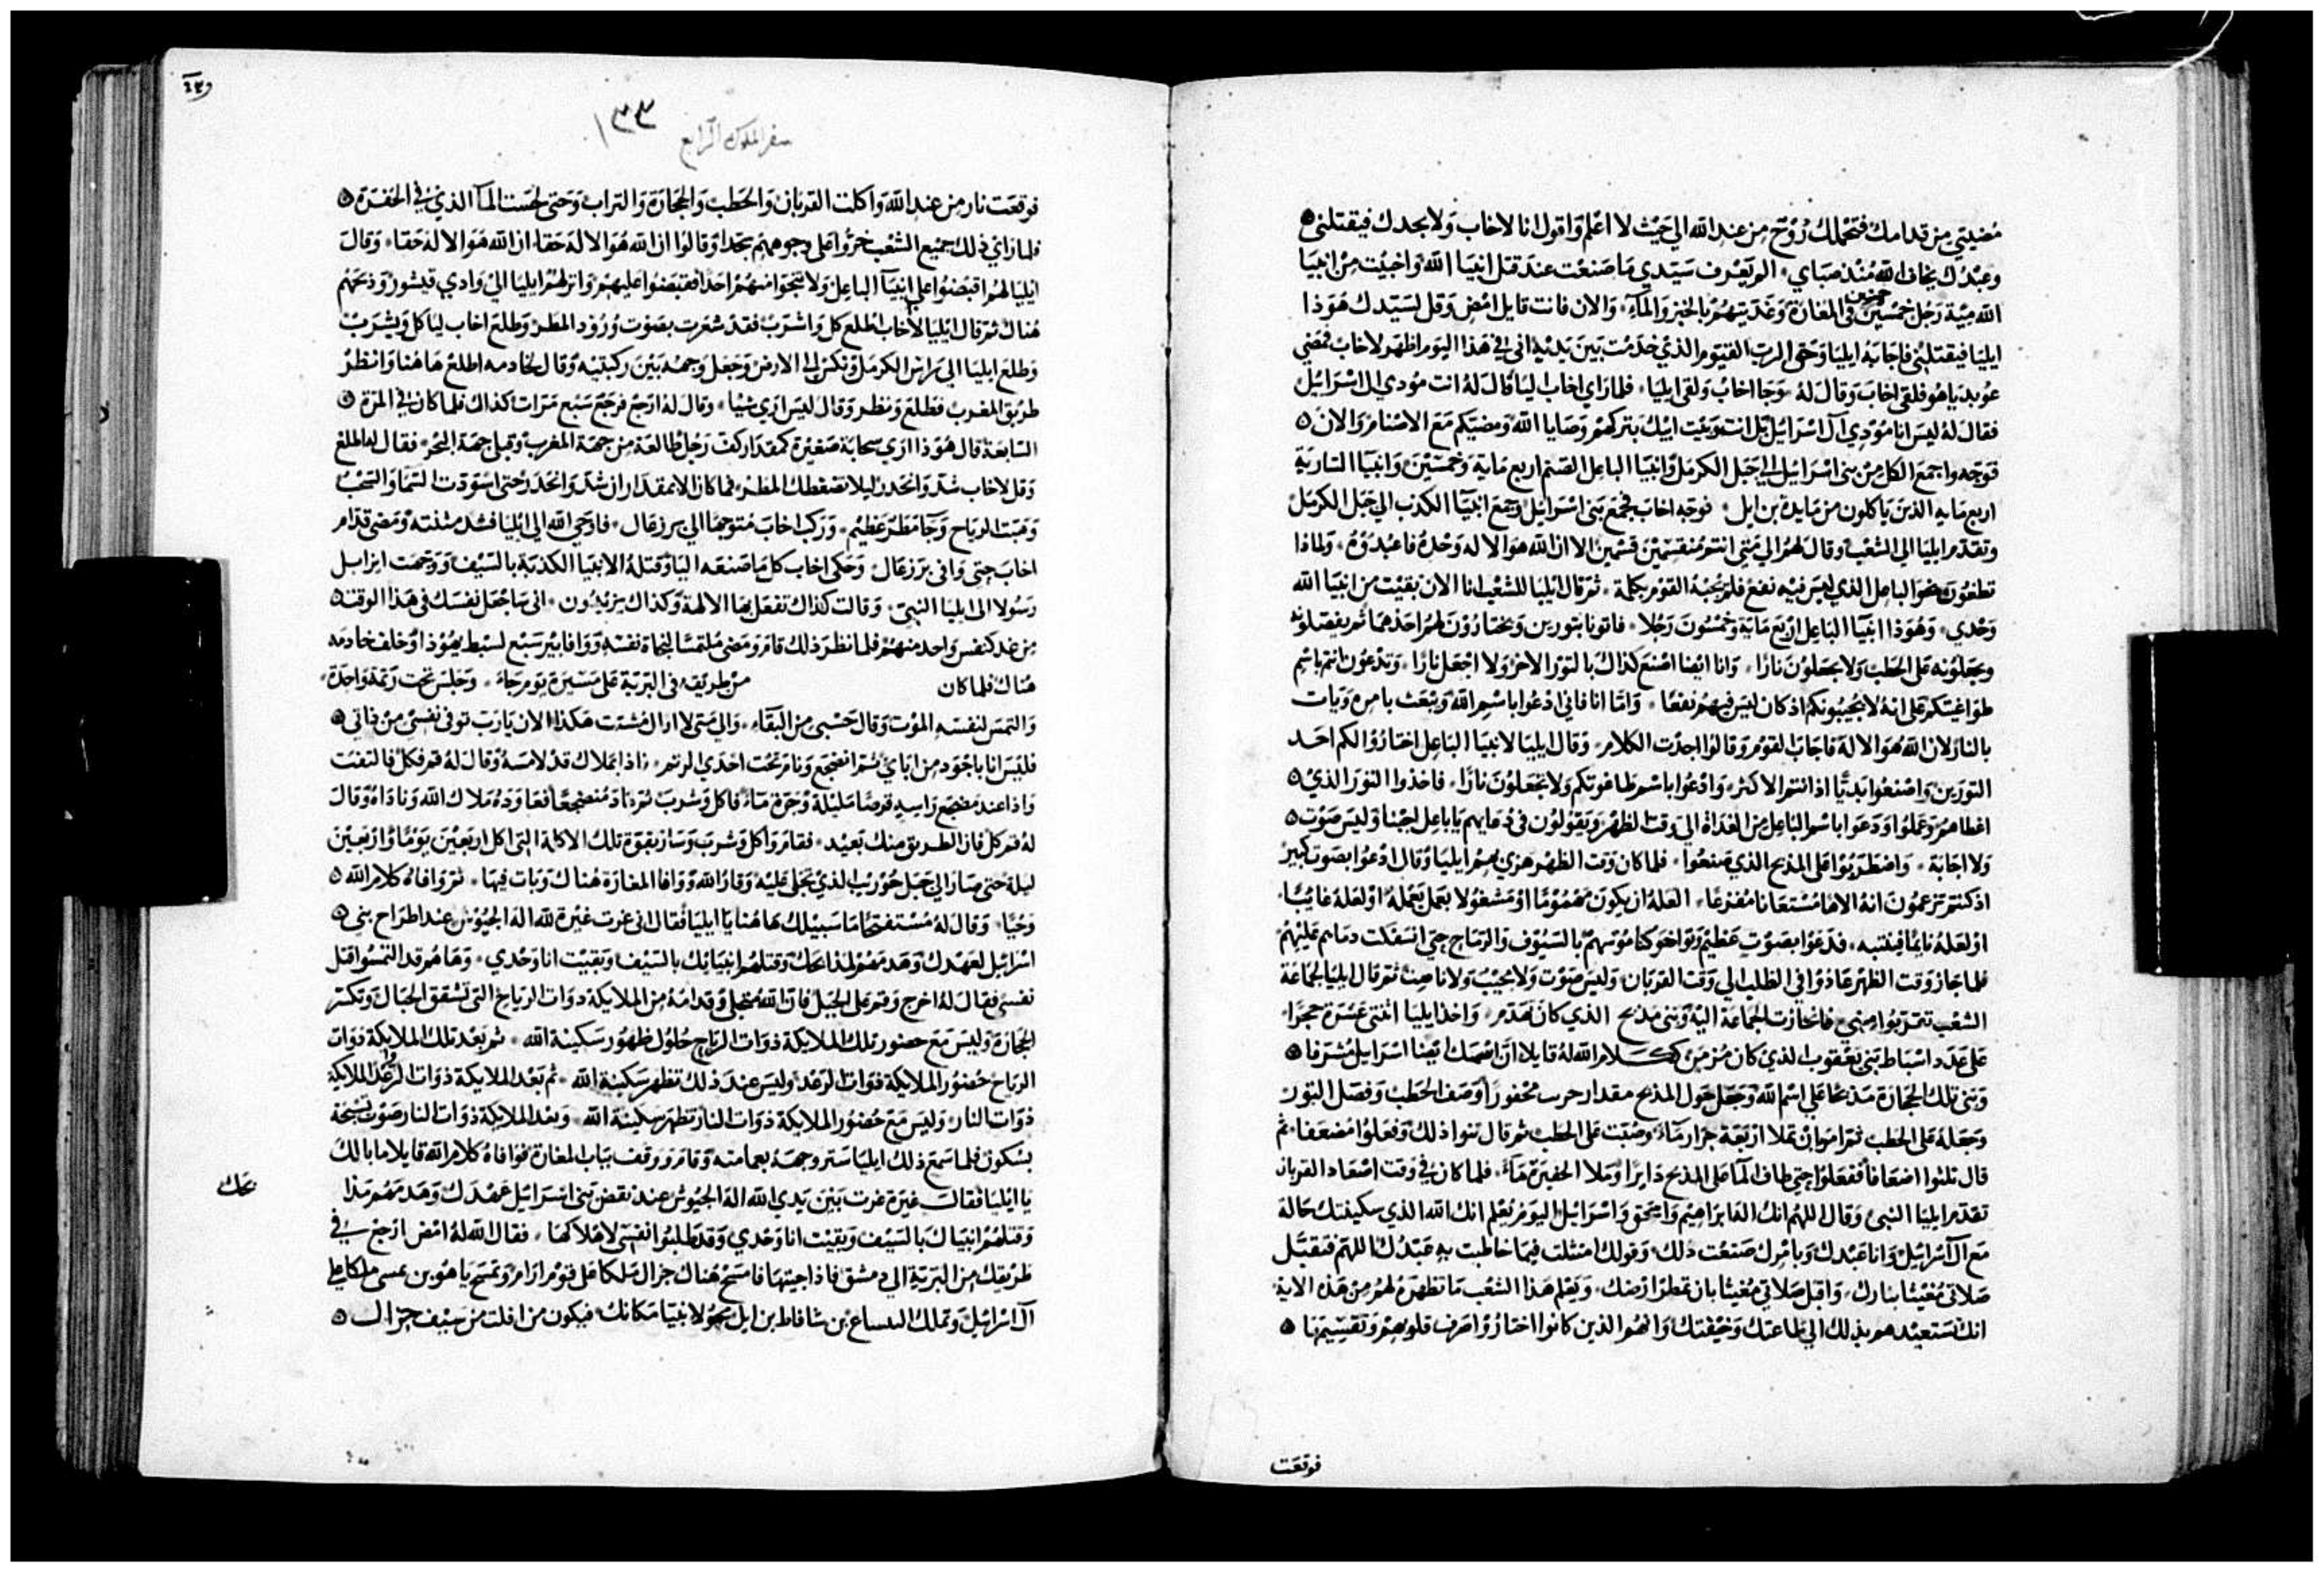 مضيتي من قدامك فتحملك روح من عند الله الي حيث لا اعلم واقول انا لاخاب ولا يجدك فيقتلني
وعبدك يخاف الله منذ صباي الم يعرف سيدي ما صنعت عند قتل انبيا الله واخبيت من انبيا
الله مية رجل خمسين خمسين في المغارة وغديتهم بالخبز والمآء والان فانت قايل امض وقل لسيدك هوذا
ايليا فيقتلني فاجابه ايليا وحق الرب القيوم الذي خدمت بين يديه اني في هذا اليوم اظهر لاخاب فمضي
عوبديا هو فلقي اخاب وقال له وجا اخاب ولقي ايليا فلما راي اخاب ايليا قال له انت مودي ال اسرائيل
فقال له ليس انا مودي آل اسرائيل بل انت وبيت ابيك بتركهم وصايا الله ومضيتكم مع الاصنام والان
توجه واجمع الكل من بني اسرائيل الي جبل الكرمل وانبيا الباعل الصنم اربع ماية وخمسين وانبيآ السارية
اربع ماية الذين ياكلون من مايدة بن ايل فوجه اخاب فجمع بني اسرائيل وجمع انبيآ الكدب الي جبل الكرمل
وتقدم ايليا الي الشعب وقال لهم الي متي انتم منقسمين قسمين الا ان الله هو الاله وحده فاعبدوه ولماذا
تطغون نحو الباعل الذي ليس فيه نفع فلم يجبه القوم بكلمة ثم قال ايليا للشعب انا الان بقيت من انبيا الله
وحدي وهوذا انبيآ الباعل اربع ماية وخمسون رجلا فاتونا بثورين ويختارون لهم احدهما ثم يفصلونه
ويجعلونه علي الحطب ولا يجعلون نارا وانا ايضا اصنع كذاك بالثور الاخر ولا اجعل نارا وتدعون انتم باسم
طواغيتكم علي انه لا يجيبونكم اذ كان ليس فيهم نفعا واما انا فاني ادعوا باسم الله ويبعث بامره ويات
بالنار لان الله هو الاله فاجاب القوم وقالوا اجدت الكلام وقال ايليا لانبيا الباعل اختاروا لكم احد
الثورين واصنعوا بديا اذ انتم الاكثر وادعوا باسم طاغوتكم ولا تجعلون نارا فاخذوا الثور الذي
اعطاهم وعملوا ودعوا باسم الباعل من الغداة الي وقت الظهر ويقولون في دعايهم يا باعل اجبنا وليس صوت
ولا اجابة واضطربوا علي المذبح الذي صنعوا فلما كان وقت الظهر هزي بهم ايليا وقال ادعوا بصوت كبير
اذ كنتم تزعمون انه الاها مستعانا مفزعا العله ان يكون مهموما او مشغولا بعمل يعمله او لعله غايبا
او لعله نايما فينتبه فدعوا بصوت عظيم وتواخوا كناموسهم بالسيوف والرماح حتي انسفكت دماهم عليهم
فلما جاز وقت الظهر عاذوا في الطلب الي وقت القربان وليس صوت ولا مجيب ولا ناصت ثم قال ايليا لجماعة
الشعب تقربوا مني فانحازت الجماعة اليه وبني مذبح الذي كان تهدم واخذ ايليا اثنتي عشرة حجرا
علي عدد اسباط بني يعقوب الذي كان من كلام الله له قايلا ان اسمك ايضا اسرايل مشرفا
وبني تلك الحجارة مذبحا علي اسم الله وجعل حول المذبح مقدار حرب محفورا وصف الحطب وفصل الثور
وجعله علي الحطب ثم امر بان تملا اربعة جرار مآء وصبت علي الحطب ثم قال ثنوا ذلك وفعلوا مضعفا ثم
قال ثلثوا اضعافا ففعلوا حتي طاف المآ علي المذبح دايرا وملا الحفير مآء فلما كان في وقت اصعاد القربان
تقدم ايليا النبي وقال اللهم انك اله ابراهيم واسحق واسرائيل اليوم نعلم انك الله الذي سكينتك حالة
مع آل اسرائيل وانا عبدك وبامرك صنعت ذلك وقولك امتثلت فيما خاطبت به عبدك اللهم فتقبل
صلاتي مغيثا بنارك واقبل صلاتي مغيثا بان تمطر ارضك ويعلم هذا الشعب ما تظهره لهم من هذه الاية
انك تستعيدهم بذلك الي طاعتك وخيفتك وانهم الذين كانوا اختاروا صرف قلوبهم وتقسيمها
فوقعت
سفر الملوك الرابع ١٣٣
فوقعت نار من عند الله واكلت القربان والحطب والحجارة والتراب وحتي لحست المآ الذي في الحفرة
فلما راي ذلك جميع الشعب خروا علي وجوههم سجدا وقالوا ان الله هو الاله حقا ان الله هو الاله حقا وقال
ايليا لهم اقبضوا علي انبيآ الباعل ولا ينجوا منهم احدا فقبضوا عليهم وانزلهم ايليا الي وادي قيشون وذبحهم
هناك ثم قال ايليا لاخاب اطلع كل واشرب فقد شعرت بصوت ورود المطر وطلع اخاب لياكل ويشرب
وطلع ايليا الي راس الكرمل ونكس الي الارض وجعل وجهه بين ركبتيه وقال لخادمه اطلع هاهنا وانظر
طريق المغرب فطلع ونظر وقال ليس اري شيا وقال له ارجع فرجع سبع مرات كذاك فلما كان في المرة
السابعة قال هوذا اري سحابة صغيرة كمقدار كف رجل طالعة من جهة المغرب وقبل جهة البحر فقال له اطلع
وقل لاخاب شد وانحدر ليلا تضغطك المطر فما كان الا بمقدار ان شد وانحدر حتي اسودت السما والسحب
وهبت الرياح وجآ مطر عظيم وركب اخاب متوجها الي يرزعال فاوحي الله الي ايليا فشد متنته ومضي قدام
اخاب حتي وافي يرزعال وحكي اخاب كل ما صنعه اليا وقتله الانبيا الكذبة بالسيف ووجهت ايزابل
رسولا الي ايليا النبي وقالت كذاك تفعل بها الالهة وكذاك يزيدون اني ساجعل نفسك في هذا الوقت
من غد كنفس واحد منهم فلما نظر ذلك قام ومضي ملتمسا لنجاة نفسه ووافا بير سبع لسبط يهوذا وخلف خادمه
هناك فلما كان من طريقه في البرية علي مسيرة يوم جاء وجلس تحت رتمة واحدة
والتمس لنفسه الموت وقال حسبي من البقآء والي متي لا ازال مشتت هكذا الان يا رب توفي نفسي من ذاتي
فليس انا باجود من اباي ثم انضجع ونام تحت احدي الرتم واذا بملاك قد لامسه وقال له قم فكل فالتفت
واذا عند مضجع راسه قرصا مليلة وجرة مآء فاكل وشرب ثم عاد منضجعا فعاوده ملاك الله وناداه وقال
له قم كل فان الطريق منك بعيد فقام واكل وشرب وسار بقوة تلك الاكلة التي اكل اربعين يوما واربعين
ليلة حتي صار الي جبل حوريب الذي تجلي عليه وقار الله ووافا المغارة هناك وبات فيها ثم وافاه كلام الله
وحيا وقال له مستفتحا ما سبيلك هاهنا يا ايليا فقال اني غرت غيرة لله اله الجيوش عند اطراح بني
اسرائيل لعهدك وهدمهم لمذابحك وقتلهم انبيائك بالسيف وبقيت انا وحدي وها هم قد التمسوا قتل
نفسي فقال له اخرج وقم علي الجبل فان الله متجلي وقدامه من الملايكة ذوات الرياح التي تشقق الجبال وتكسر
الحجارة وليس مع حضور تلك الملايكة ذوات الرياح حلول ظهور سكينة الله ثم بعد تلك الملايكة ذوات
الرياح حضور الملايكة ذوات الرعد وليس عند ذلك تظهر سكينة الله ثم بعد الملايكة ذوات الرعد الملايكة
ذوات النار وليس مع حضور الملايكة ذوات النار تظهر سكينة الله وبعد الملايكة ذوات النار صوت تسبحة
بسكون فلما سمع ذلك ايليا ستر وجهه بعمامته وقام ووقف بباب المغارة فوافاه كلام الله قايلا ما بالك
يا ايليا فقال غيرة غرت بين يدي الله اله الجيوش عند نقض بني اسرائيل عهدك وهدمهم مذا
بحك
وقتلهم انبياك بالسيف وبقيت انا وحدي وقد طلبوا نفسي لاهلاكها فقال الله له امض ارجع في
طريقك من البرية الي دمشق فاذا جيتها فامسح هناك حزال ملكا علي قوم ارام وتمسح ياهو بن نمسي ملكا علي
آل اسرائيل وتملك اليساع بن شافاط بن ابل محولا نبيا مكانك فيكون من افلت من سيف حزال